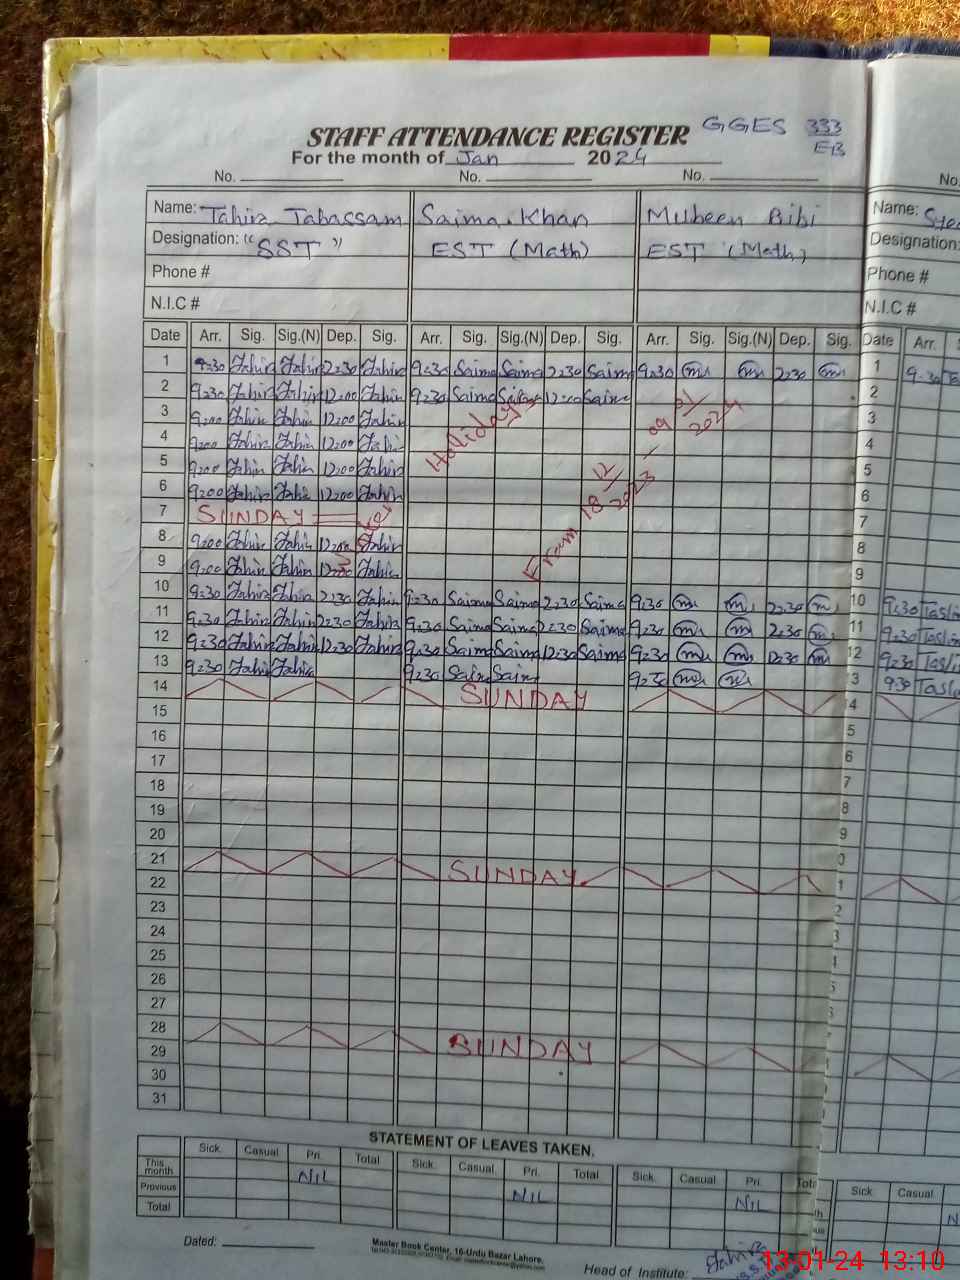 STAFF ATTENDANCE REGISTER GGES 333
EB
For the month of Jan 2024
No. No. No. No.
Name: Tahira Tabassam Saima Khan Mubeen Bibi Name:
Designation: "SST" EST (Math) EST (Math) Designation:
Phone # Phone #
N.I.C # N.I.C #
Date Arr. Sig. Sig.(N) Dep. Sig. Arr. Sig. Sig.(N) Dep. Sig. Arr. Sig. Sig.(N) Dep. Sig. Date Arr. S
1 9:30 Tahira Tahira 2:30 Tahira 9:30 Saima Saima 2:30 Saima 9:30 2:30 1 9:30
2 9:30 Tahira Tahira 12:00 Tahira 9:30 Saima Saima 12:00 Saima 2
3 9:00 Tahira Tahira 12:00 Tahira 3
4 9:00 Tahira Tahira 12:00 Tahira 4
5 9:00 Tahira Tahira 12:00 Tahira 5
6 9:00 Tahira Tahira 12:00 Tahira 6
7 SUNDAY 7
8 9:00 Tahira Tahira 12:00 Tahira 8
9 9:00 Tahira Tahira 12:00 Tahira 9
Holidays
From 18 12/2023 – 09 01/2024
10 9:30 Tahira Tahira 2:30 Tahira 9:30 Saima Saima 2:30 Saima 9:30 2:30 10 9:30 Tasli
11 9:30 Tahira Tahira 2:30 Tahira 9:30 Saima Saima 2:30 Saima 9:30 2:30 11 9:30 Tasli
12 9:30 Tahira Tahira 12:30 Tahira 9:30 Saima Saima 12:30 Saima 9:30 12:30 12 9:30 Tasli
13 9:30 Tahira Tahira 9:30 Saima Saima 9:30 3 9:30 Tasl
14 SUNDAY 4
15 5
16 6
17 7
18 8
19 9
20 0
21 SUNDAY 1
22 2
23 3
24
25
26
27
28 SUNDAY
29
30
31
STATEMENT OF LEAVES TAKEN.
Sick. Casual Pri. Total Sick. Casual Pri. Total Sick. Casual Pri. Tot Sick. Casual
This month NIL NIL NIL
Previous
Total
Dated: Master Book Center, 16-Urdu Bazar Lahore. Head of Institute: Tahira
13-01-24 13:10